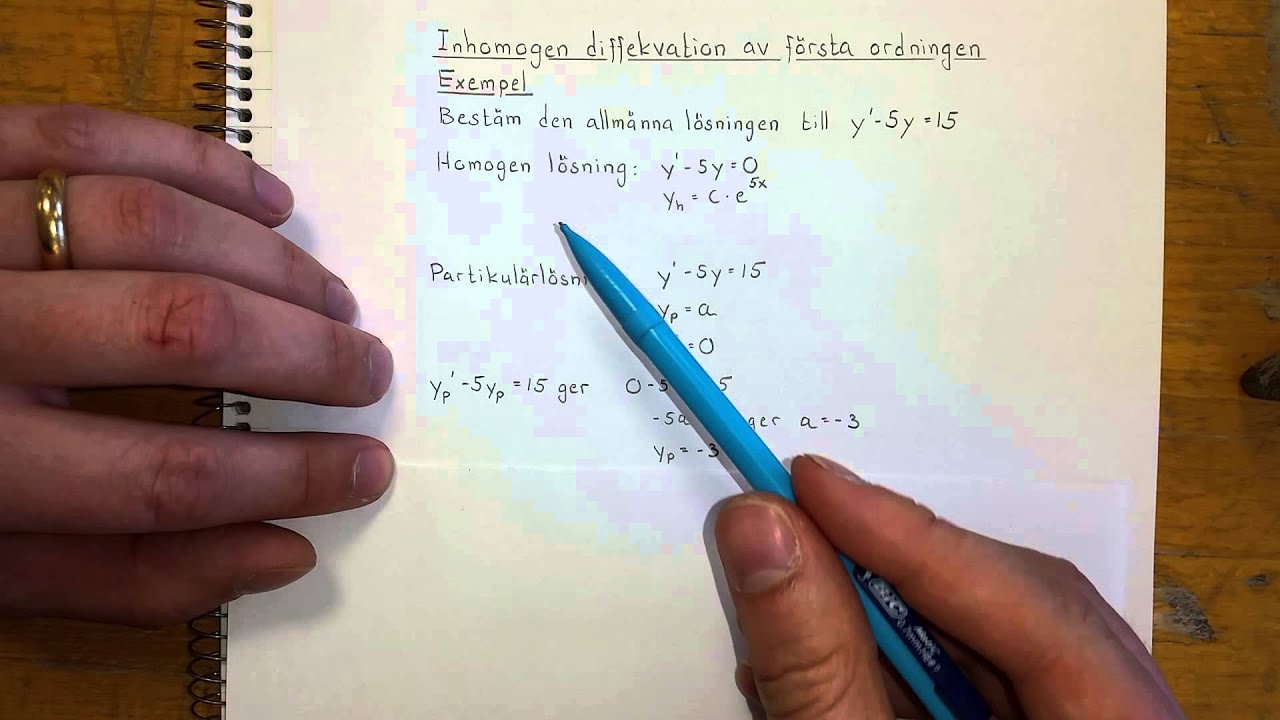 Inhomogen diffekvation av första ordningen
Exempel
Bestäm den allmänna lösningen till y' - 5y = 15
Homogen lösning: y' - 5y = 0
y_h = C · e^5x
y' - 5y = 15
y_p = a
= 0
y_p' - 5y_p = 15 ger 0 - 5
-5a ger a = -3
y_p = -3
BIC